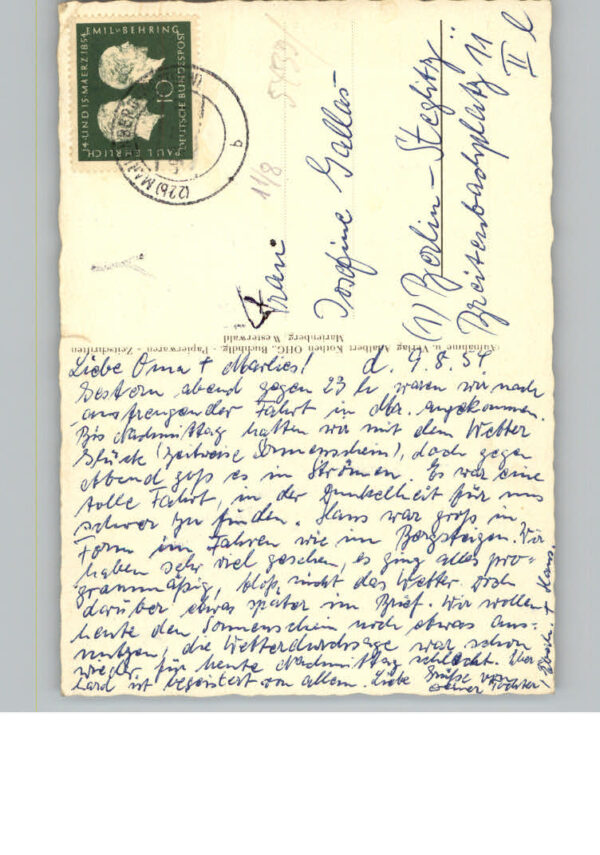 14. UND 15. MAERZ 1854
EMIL v. BEHRING
PAUL EHRLICH
DEUTSCHE BUNDESPOST
10
(22b) MARIENBERG
b
1/8
Frau
Josefine Gallas
(1) Berlin-Steglitz
Breitenbachplatz 11
II l
Aufnahme u. Verlag Adalbert Kothen OHG., Buchhdlg. - Papierwaren - Zeitschriften
Marienberg, Westerwald
Liebe Oma + Marlies! d. 9.8.54
Gestern abend gegen 23 h waren wir nach
anstrengender Fahrt in Mbr. angekommen.
Bis Nachmittag hatten wir mit dem Wetter
Glück (zeitweise Sonnenschein), doch gegen
Abend goß es in Strömen. Es war eine
tolle Fahrt, in der Dunkelheit für uns
schwer zu finden. Hans war groß in
Form im Fahren wie im Bergsteigen. Wir
haben sehr viel gesehen, es ging alles pro-
grammäßig, bloß nicht das Wetter, doch
darüber etwas später im Brief. Wir wollen
heute den Sonnenschein noch etwas aus-
nutzen, die Wetterdurchsage war schon
wieder für heute Nachmittag schlecht.
hard ist begeistert von allem. Liebe Grüße von
Deiner Tochter
+ Hans.